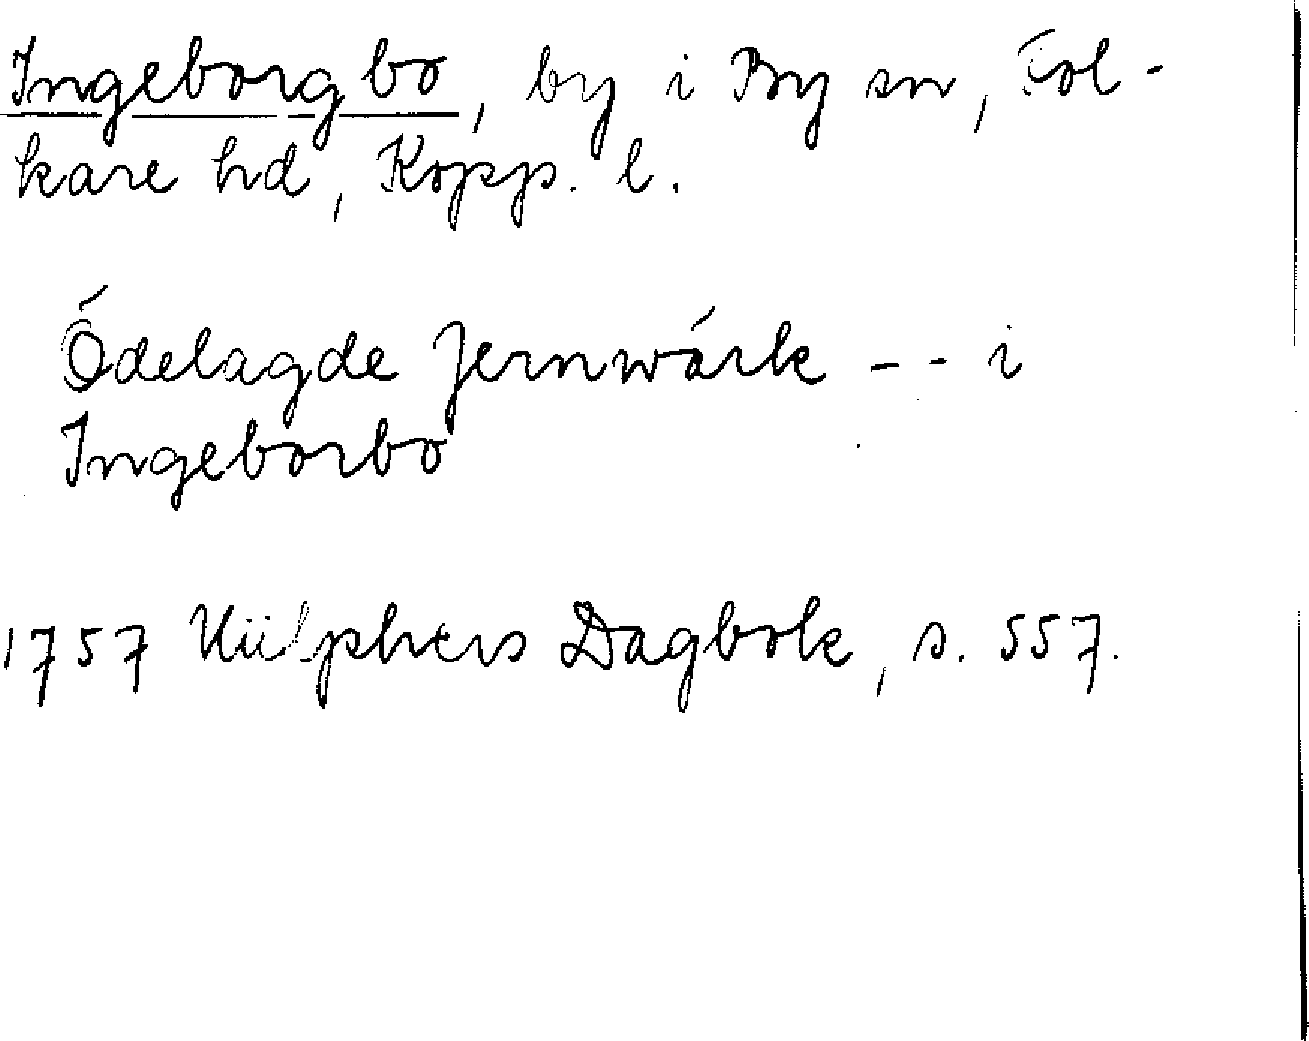 Ingeborgbo, by i By sn, Fol-
kare hd, Kopp. l.
Ódelagde Jernwárk - - i
Ingeborbo
1757 Hülphers Dagbok, s. 557.